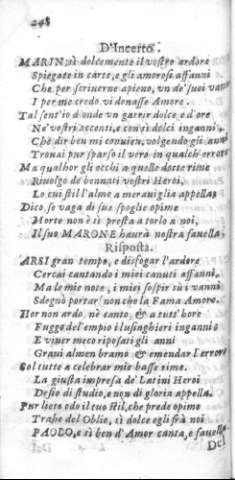 248
D'Incerto.
MARIN, sì dolcemente il vostro ardore
Spiegate in carte, e gli amorosi affanni
Che per scriuerne apieno, un de' suoi vanni
I per me credo vi donasse Amore.
Tal sent'io d'onde un garrir dolce ed ore
Ne' vostri accenti, e con sì dolci inganni,
Che dir ben mi conuien, volgendo gli anni
Trouai pur sparso il vero in qualch' errore
Ma qualhor gli occhi a quelle dotte rime
Riuolgo de' bennati vostri Heroi,
Lo cui stil l'alme a merauiglia appella,
Dico, se vaga di sue spoglie opime
Morte non è sì presta a torlo a noi,
Il suo MARONE haurà nostra fauella.
Risposta.
ARSI gran tempo, e disfogar l'ardore
Cercai cantando i miei canuti affanni,
Ma le mie note, i miei sospir tù i vanni
Sdegnò portar' non che la Fama Amore.
Hor non ardo, nè canto, & a tutt'hore
Fuggo del'empio i lusinghieri inganni
E viuer meco riposati gli anni
Grani almen bramo, & emendar l'errore
Col tutto a celebrar mie basse rime.
La giusta impresa de' Latini Heroi
Desio di studio, e non di gloria appella.
Pur lieto odo il tuo stil, che prede opime
Trahe del'Oblio, sì dolce egli frà noi
PAOLO, e sì ben d'Amor canta, e fauella.
Del